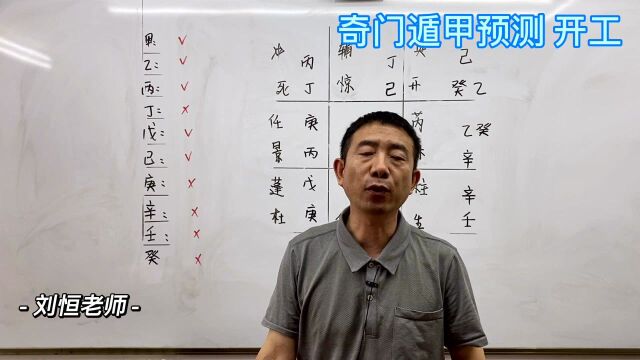 奇门遁甲预测 开工
甲: √
乙: √
丙: √
丁: ×
戊: √
己: √
庚: ×
辛: ×
壬: ×
癸 ×
丙 辅 丁 己
死 丁 惊 己 开 癸 乙
任 庚 芮 乙 癸
景 丙 辛
蓬 戊 柱 辛
杜 庚 生 壬
- 刘恒老师 -